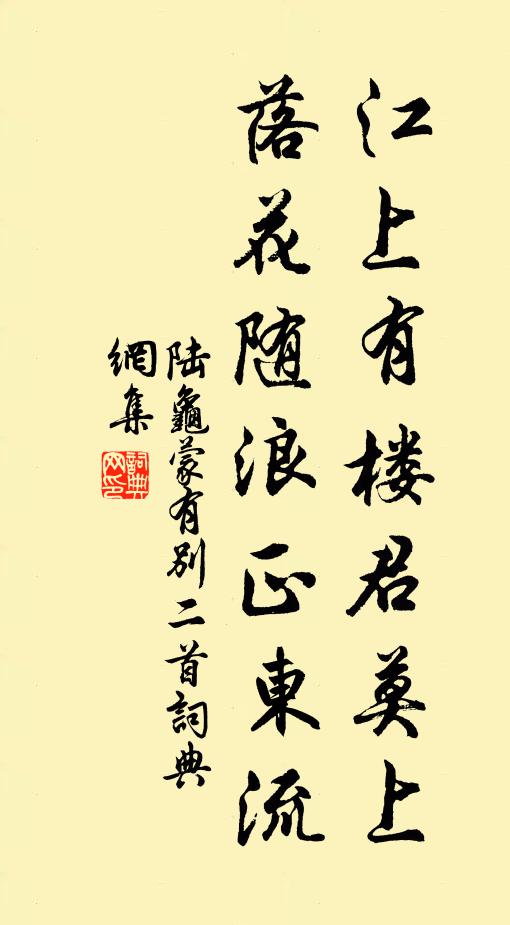 江上有楼君莫上
落花随浪正東流
陆龜蒙有别二首詞典
網集
詞典网印